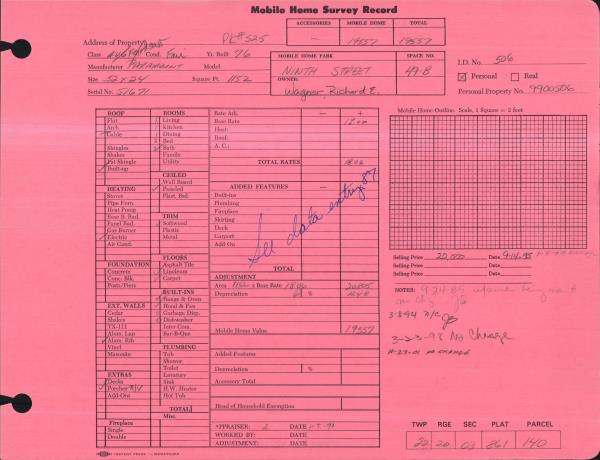 Mobile Home Survey Record
ACCESSORIES MOBILE HOME TOTAL
— 19557 19557
PL# 525
Address of Property
Class Cond. Fair Yr. Built 76
Manufacturer PARAMOUNT Model
Size 52x24 Square Ft. 1152
Serial No. 51671
MOBILE HOME PARK SPACE NO.
NINTH STREET 49-B
OWNER:
Wagner, Richard E.
I.D. No. 506
Personal Real
Personal Property No. 9900506
ROOF
Flat
Arch
Gable
Shingles
Shakes
Pat Shingle
Built-up
HEATING
Stoves
Pipe Furn.
Heat Pump
Base B. Rad.
Panel Rad.
Gas Burner
Electric
Air Cond.
FOUNDATION
Concrete
Conc. Blk.
Posts/Piers
EXT. WALLS
Cedar
Shakes
TX-111
Alum. Lap
Alum. Rib
Vinyl
Masonite
EXTRAS
Decks
Porches R/V
Add-Ons
Fireplace
Single
Double
ROOMS
Living
Kitchen
Dining
Bed
Bath
Family
Utility
CEILED
Wall Board
Paneled
Plast. Bd.
TRIM
Softwood
Plastic
Metal
FLOORS
Asphalt Tile
Linoleum
Carpet
BUILT-INS
Range & Oven
Hood & Fan
Garbage Disp.
Dishwasher
Inter Com.
Bar-B-Que
PLUMBING
Tub
Shower
Toilet
Lavatory
Sink
H.W. Heater
Hot Tub
TOTAL
Misc.
Rate Adj. — +
Base Rate 1806
Heat:
Roof:
A. C.:
TOTAL RATES 1806
ADDED FEATURES — +
Built-ins
Plumbing
Fireplace
Skirting
Deck
Carport
Add On
See data entry 87
TOTAL
ADJUSTMENT
Area 1152 x Base Rate 1806 20805
Depreciation 6 % 1248
Mobile Home Value 19557
Added Features
Depreciation %
Accessory Total
Head of Household Exemption
APPRAISER: 2 DATE
WORKED BY: DATE
ADJUSTMENT: DATE
Mobile Home Outline. Scale, 1 Square = 2 feet
Selling Price 20,000 Date 9-14-95
Selling Price Date
Selling Price Date
NOTES: 9-24-85
no chg
3-8-94 N/C
3-23-98 No Change
4-27-01 NO CHANGE
TWP RGE SEC PLAT PARCEL
22 20 03 861 140